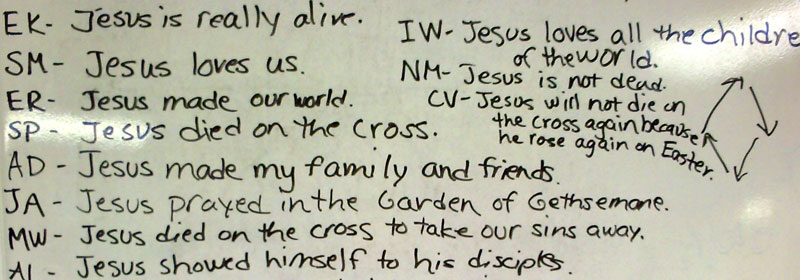 EK- Jesus is really alive.
SM- Jesus loves us.
ER- Jesus made our world.
SP- Jesus died on the cross.
AD- Jesus made my family and friends.
JA- Jesus prayed in the Garden of Gethsemane.
MW- Jesus died on the cross to take our sins away.
AI- Jesus showed himself to his disciples.
IW- Jesus loves all the childre
of the world.
NM- Jesus is not dead.
CV- Jesus will not die on
the cross again because
he rose again on Easter.